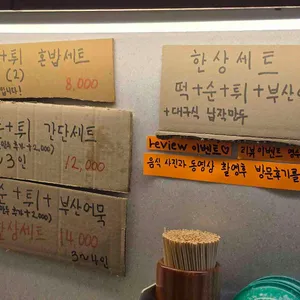 +튀 혼밥세트
(2)
8,000
+튀 간단세트
+2,000)
3인
12,000
+튀+부산어묵
+2,000)
14,000
3~4인
한상세트
떡+순+튀+부산
+대구식 납작만두
review 이벤트♡ 리뷰이벤트
음식 사진과 동영상 촬영후 방문후기를